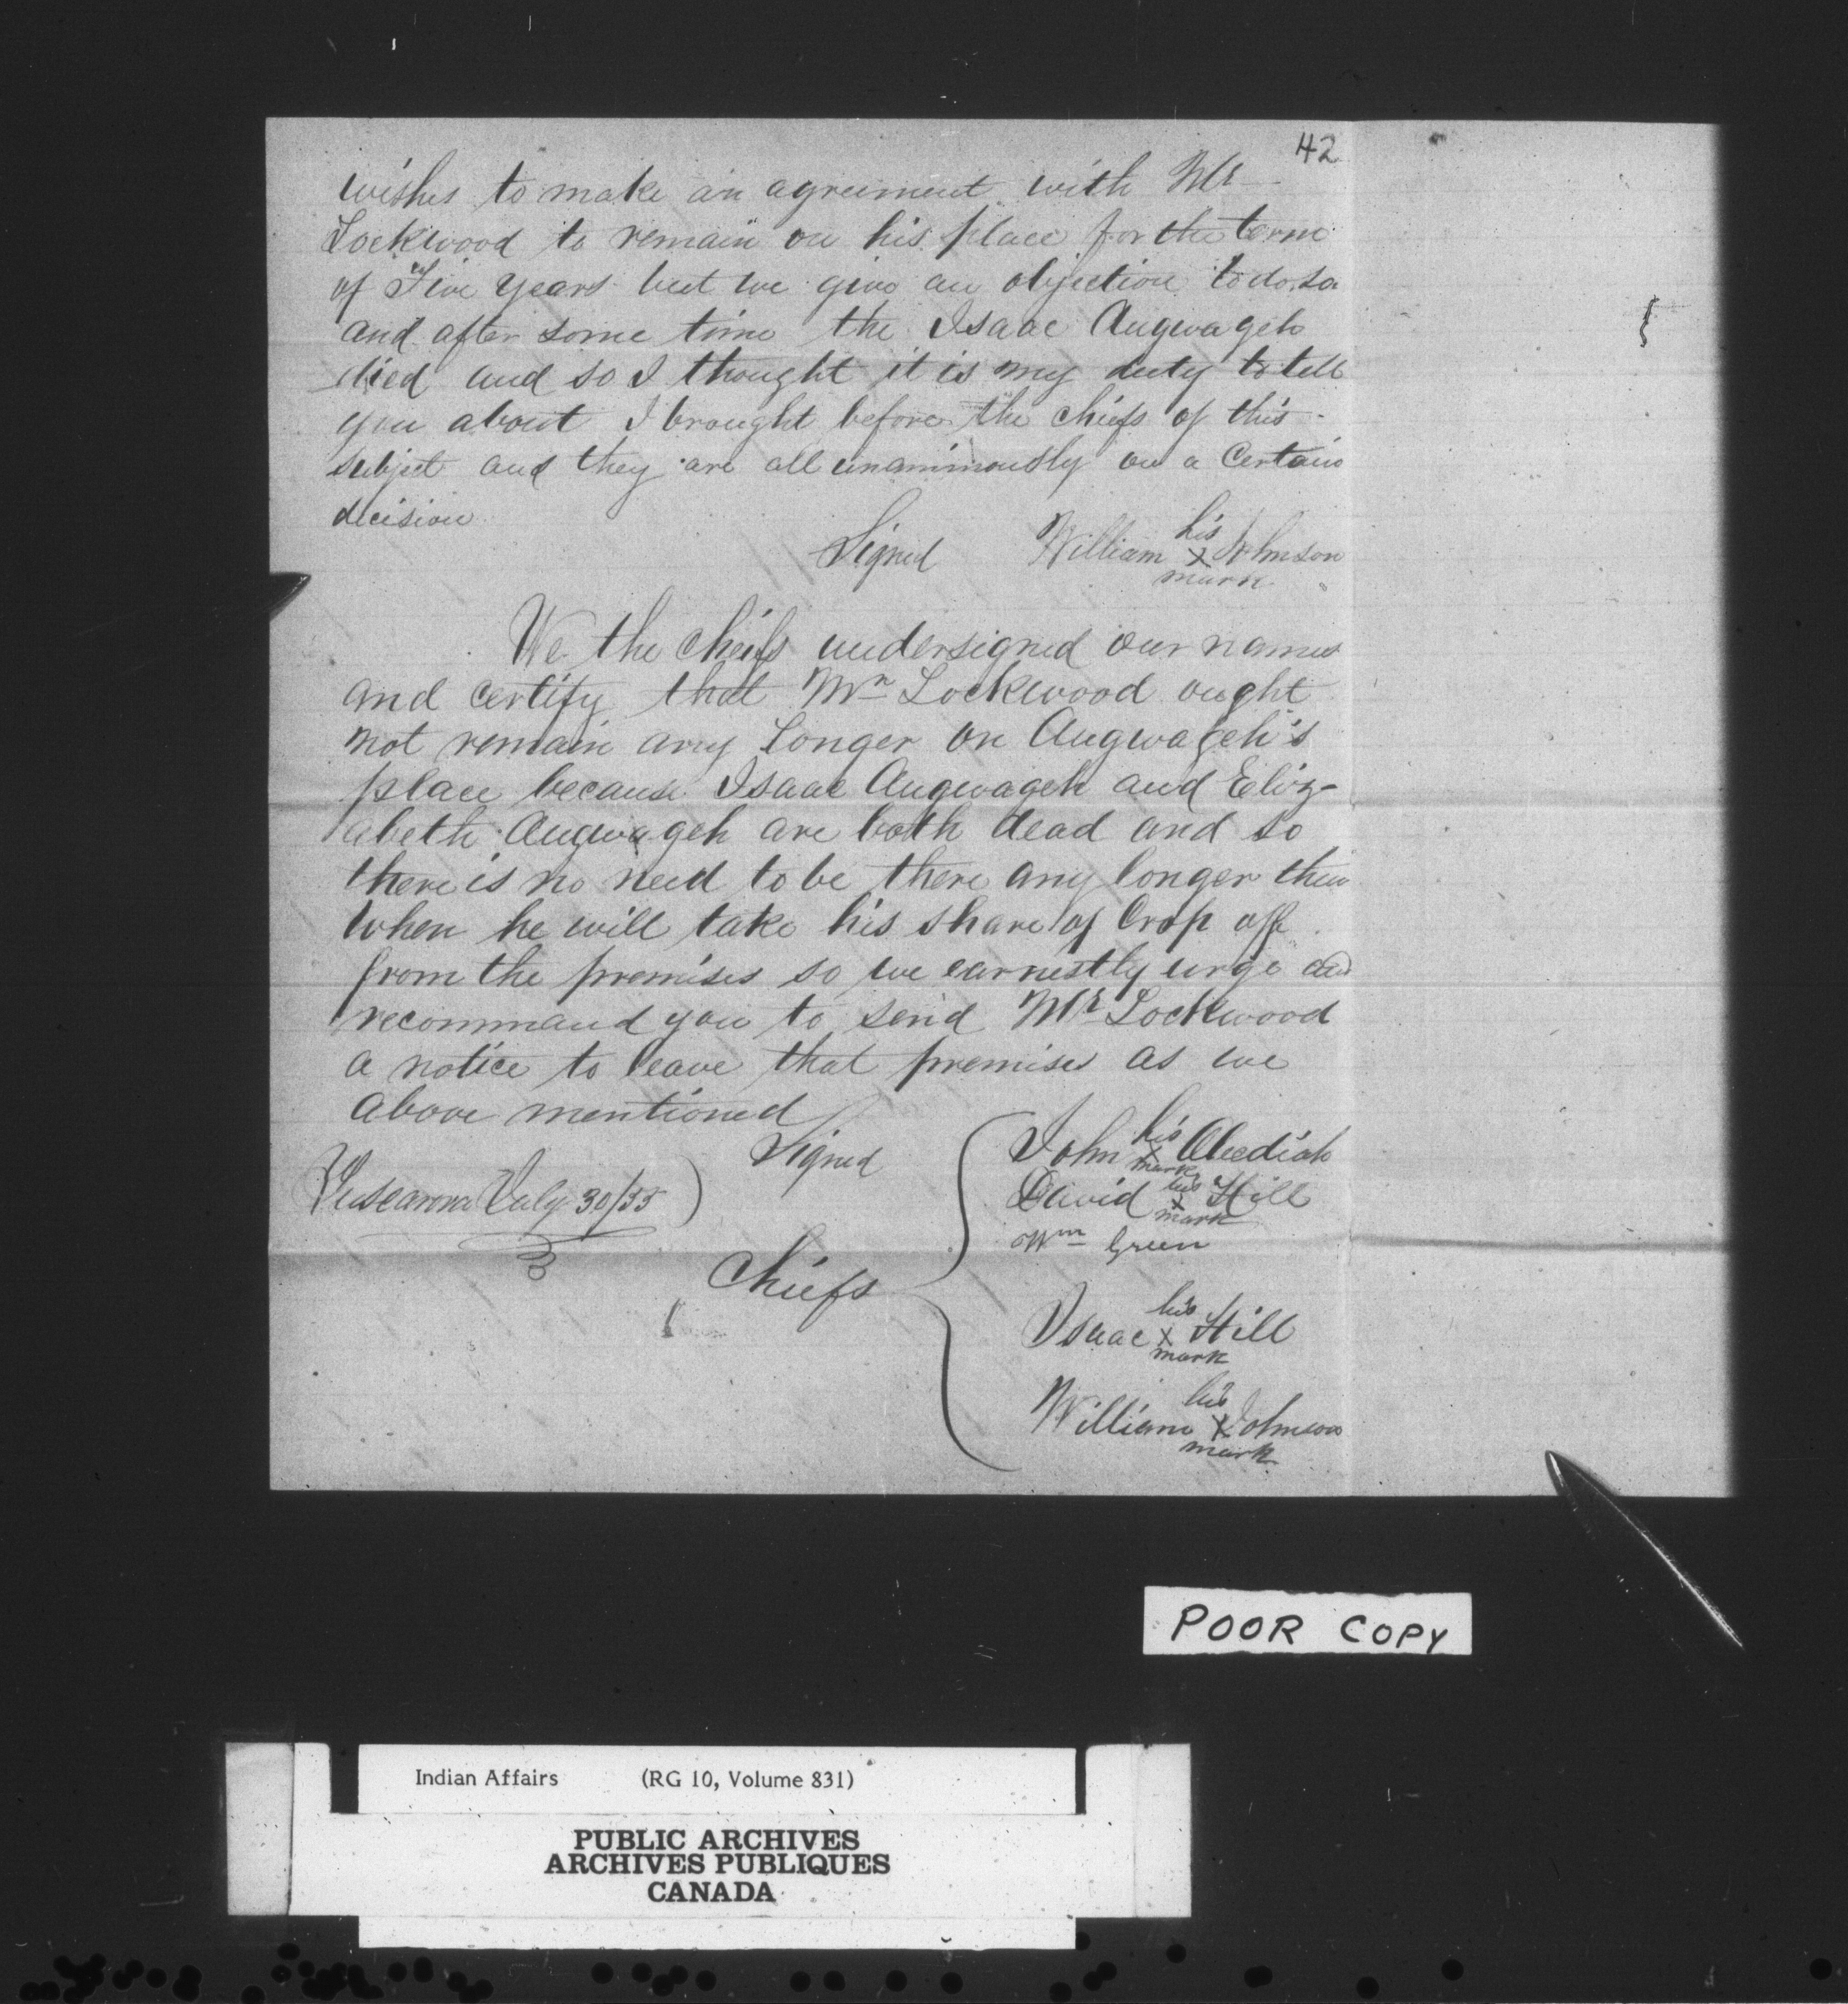 42
wishes to make an agreement with Mr
Lockwood to remain on his place for the term
of Five years but we give an objection to do so
and after some time the Isaac Augwageh
died and so I thought it is my duty to tell
you about I brought before the chiefs of this
subject and they are all unanimously on a certain
decision
Signed William his x mark Johnson
We the cheifs undersigned our names
and certify that Mr Lockwood ought
not remain any Longer on Augwageh's
place because Isaac Augwageh and Eliz-
abeth Augwageh are both dead and so
there is no need to be there any longer then
when he will take his share of Crop off
from the premises so we earnestly urge and
recommand you to send Mr Lockwood
a notice to leave that premises as we
above mentioned
Signed
John his x mark
Tuscarora July 30/55
David his x mark Hill
Wm Green
Chiefs
Isaac his x mark Hill
William his x mark Johnson
POOR COPY
Indian Affairs (RG 10, Volume 831)
PUBLIC ARCHIVES
ARCHIVES PUBLIQUES
CANADA